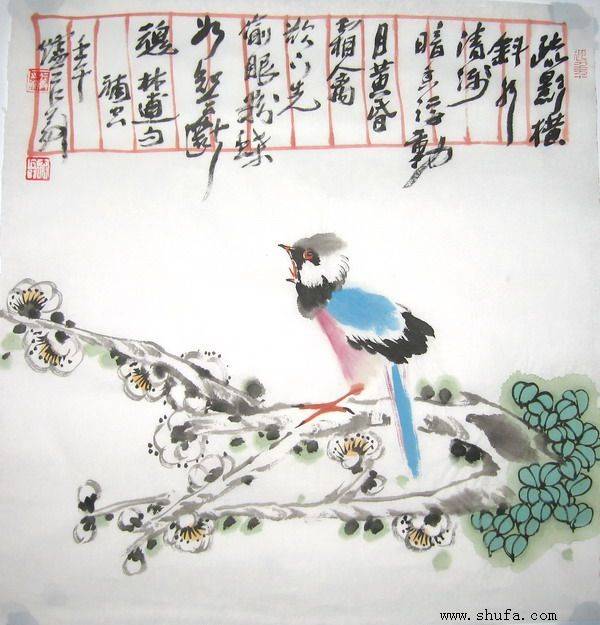 疏影横
斜水
清浅
暗香浮動
月黄昏
霜禽
欲下先
偷眼粉蝶
如知合斷
魂 林逋句
壬午
www.shufa.com